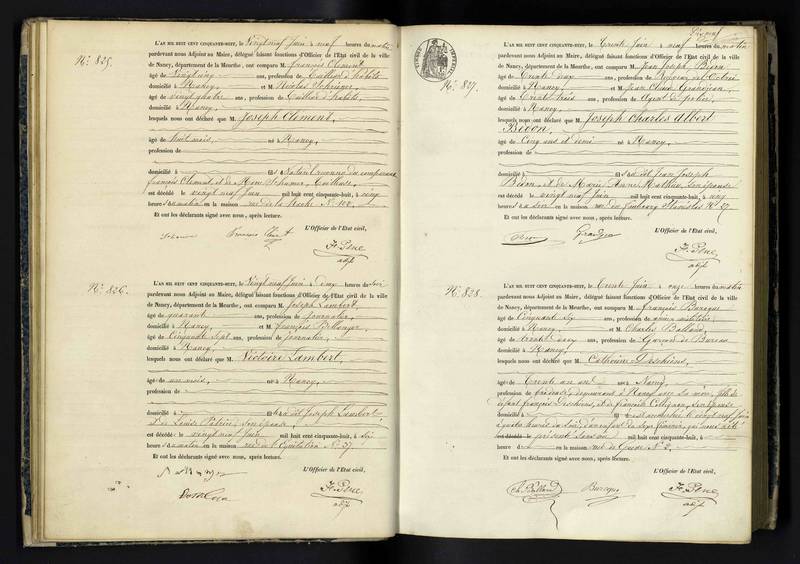 N.º 825.
L'AN MIL HUIT CENT CINQUANTE-HUIT, le Vingt neuf Juin à neuf heures du matin
pardevant nous Adjoint au Maire, délégué faisant fonctions d'Officier de l'Etat civil de la ville
de Nancy, département de la Meurthe, ont comparu M. François Clément,
âgé de Vingt cinq ans, profession de Tailleur d'habits
domicilié à Nancy, et M Nicolas
âgé de Vingt quatre ans, profession de Tailleur d'habits,
domicilié à Nancy,
lesquels nous ont déclaré que M. Joseph Clément,
âgé de huit mois, né à Nancy,
profession de
domicilié à fils naturel reconnu du comparant
François Clément, et de
est décédé le vingt neuf Juin mil huit cent cinquante-huit, à cinq
heures du matin en la maison rue de la N.º 102,
Et ont les déclarants signé avec nous, après lecture.
L'Officier de l'Etat civil,
François
adj.t
N.º 826.
L'AN MIL HUIT CENT CINQUANTE-HUIT, le Vingt neuf Juin à deux heures du soir
pardevant nous Adjoint au Maire, délégué faisant fonctions d'Officier de l'Etat civil de la ville
de Nancy, département de la Meurthe, ont comparu M. Joseph Lambert,
âgé de quarante ans, profession de journalier,
domicilié à Nancy, et M. François Bellanger,
âgé de Cinquante Sept ans, profession de journalier,
domicilié à Nancy,
lesquels nous ont déclaré que M. Victoire Lambert,
âgé de un mois, né à Nancy,
profession de
domicilié à fille dudit Joseph Lambert
et de Louise son épouse
est décédé le vingt neuf Juin mil huit cent cinquante-huit, à six
heures du matin en la maison rue de l'Equitation N.º 37.
Et ont les déclarants signé avec nous, après lecture.
L'Officier de l'Etat civil,
adj.t
N.º 827.
L'AN MIL HUIT CENT CINQUANTE-HUIT, le Trente Juin à neuf heures du matin
pardevant nous Adjoint au Maire, délégué faisant fonctions d'Officier de l'Etat civil de la ville
de Nancy, département de la Meurthe, ont comparu M. Jean Joseph Bivon
âgé de Trente deux ans, profession de
domicilié à Nancy, et M Jean Claude Grandjean
âgé de Trente trois ans, profession de Agent de police,
domicilié à Nancy,
lesquels nous ont déclaré que M. Joseph Charles Albert
Bivon,
âgé de Cinq ans et demi né à Nancy,
profession de
domicilié à fils dudit Jean Joseph
Bivon, et de Marie Anne Mathieu, son épouse
est décédé le vingt neuf Juin mil huit cent cinquante-huit, à cinq
heures du soir en la maison rue du Faubourg Stanislas N.º 37.
Et ont les déclarants signé avec nous, après lecture.
L'Officier de l'Etat civil,
Bivon Grandjean
adj.t
N.º 828.
L'AN MIL HUIT CENT CINQUANTE-HUIT, le Trente Juin à onze heures du matin
pardevant nous Adjoint au Maire, délégué faisant fonctions d'Officier de l'Etat civil de la ville
de Nancy, département de la Meurthe, ont comparu M. François
âgé de Cinquante Six ans, profession de ancien militaire,
domicilié à Nancy, et M. Charles Balland,
âgé de trente deux ans, profession de Garçon de Bureau
domicilié à Nancy,
lesquels nous ont déclaré que M. Catherine Deschiens,
âgé de Trente un ans né à Nancy,
profession de brodeuse, demeurant à Nancy avec sa mère, fille de
défunt François Deschiens, et de Collignon, son épouse
domicilié à est accouchée le vingt neuf Juin
à quatre heures du soir, d'un enfant du sexe féminin, qui nous a été
est décédé le présenté sans vie mil huit cent cinquante-huit, à
heures en la maison rue de Grève N.º 2,
Et ont les déclarants signé avec nous, après lecture.
L'Officier de l'Etat civil,
Ch. Balland
adj.t